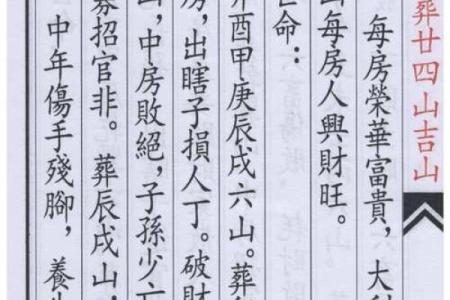 葬廿四山吉山
每房榮華富貴，大
每房人興財旺。
命：
酉甲庚辰戌六山。葬
房，出瞎子損人丁。破財
，中房敗絕，子孫少亡
招官非。葬辰戌山，
中年傷手殘腳，養